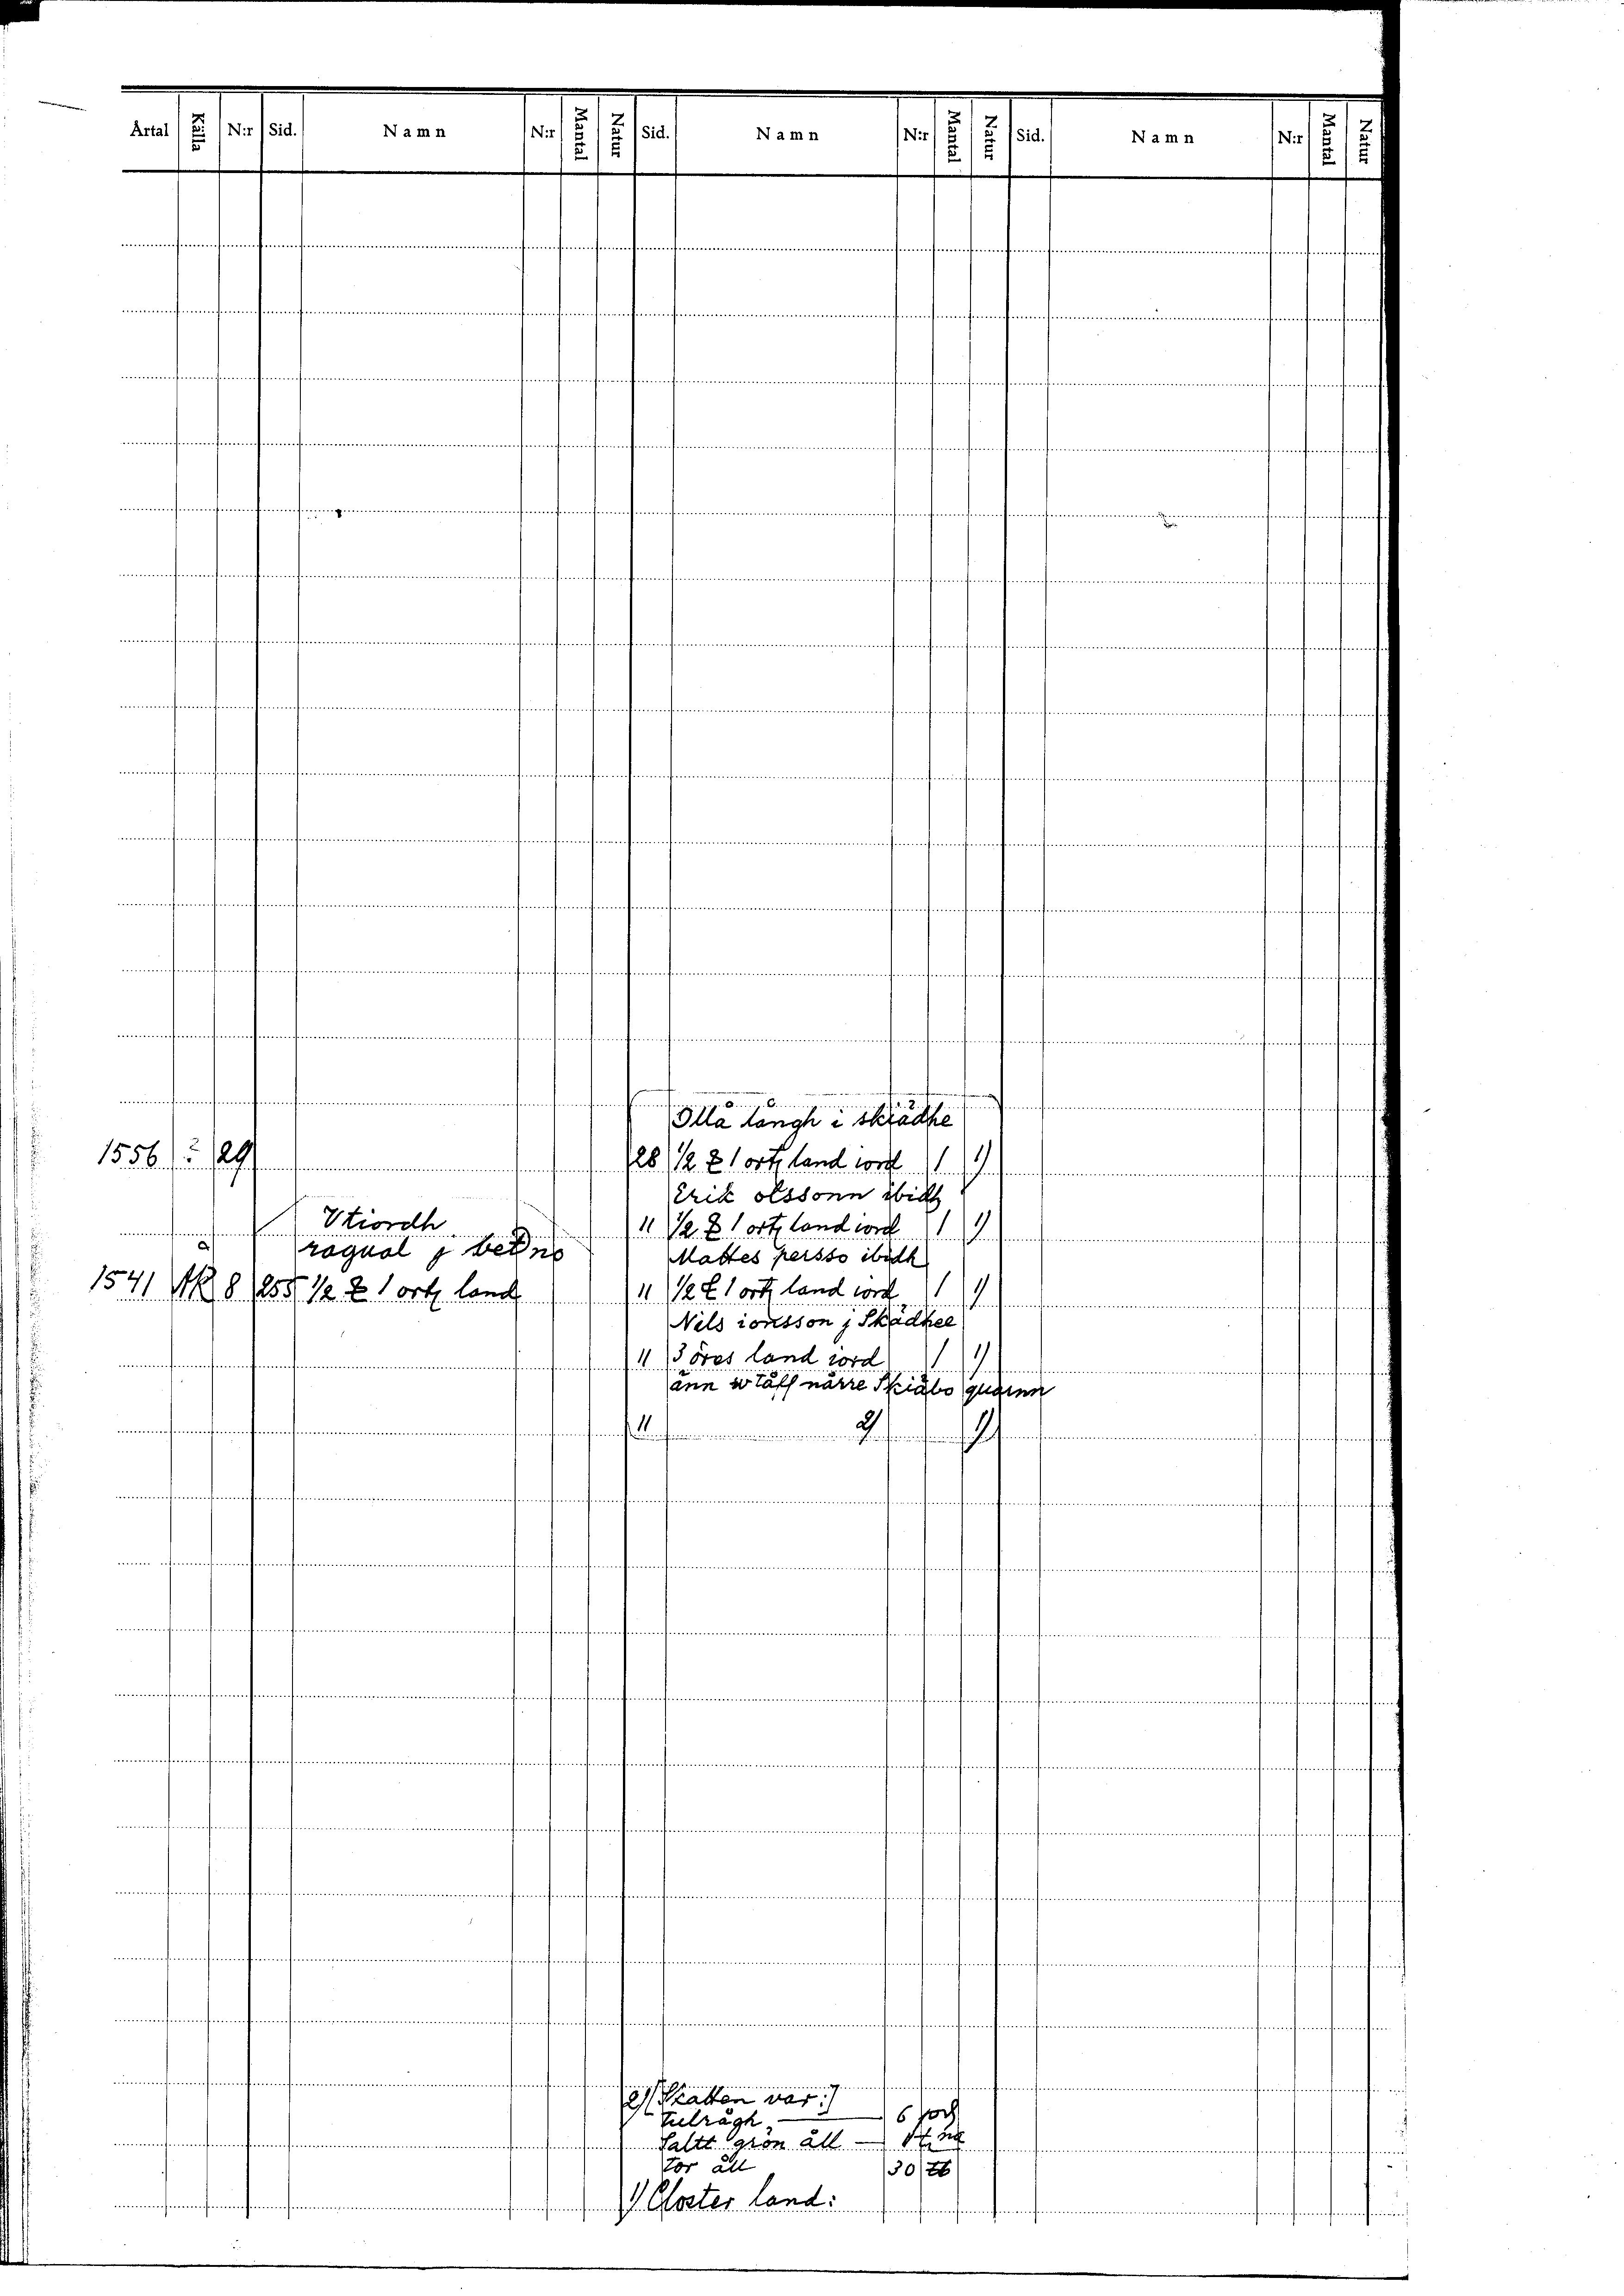 Årtal Källa N:r Sid. Namn N:r Mantal Natur Sid. Namn N:r Mantal Natur Sid. Namn N:r Mantal Natur
Ollå långh i skrädhe
1556 29 28 1/2 1 ort land iord 1 1)
Erik olssonn ibidh
Vtiordh 11 1/2 1 ort land iord 1 1)
ragual j betno Mattes persso ibidh
1541 ÅR 8 255 1/2 1 ort land 11 1/2 1 ort land iord 1 1)
Nels ionsson j Skädhee
11 3 öres land iord 1 1)
änn närre Skiäbo quarnn
11 2) 1)
2) [Skatten var:]
tulrågh 6
Saltt grön åll
tor åll 30 lb
1) Closter land: